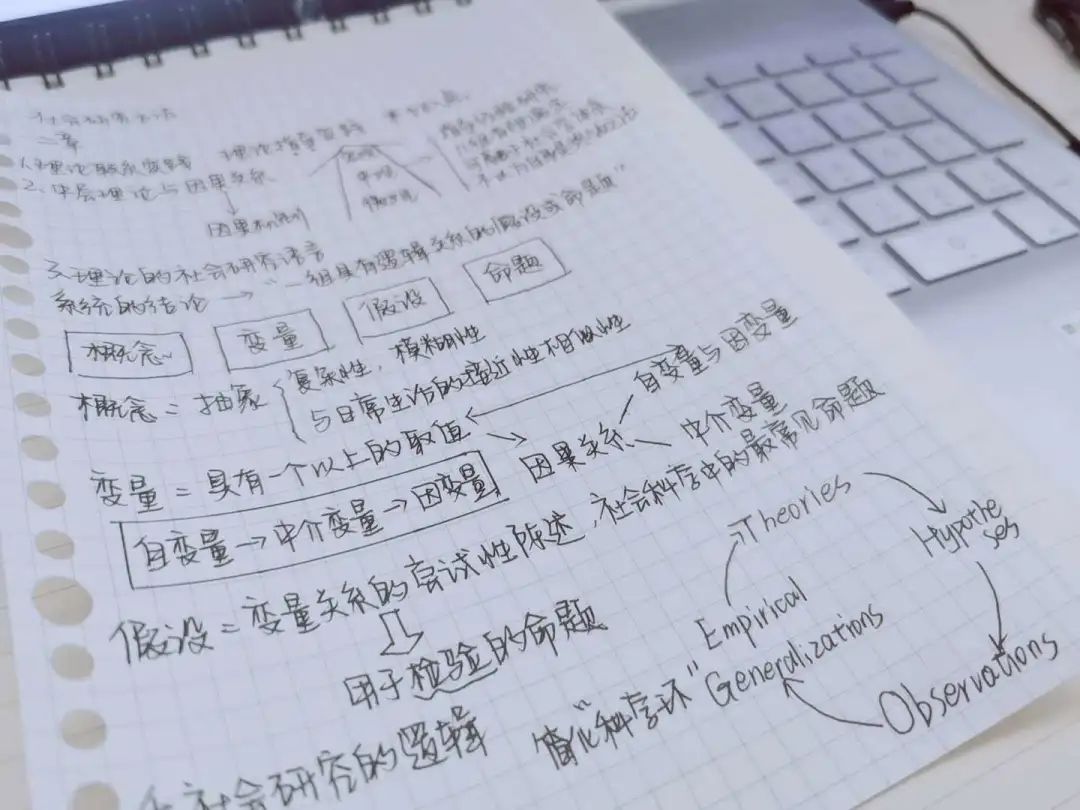 社会研究方法
二章
1.理论联系实践
理论指导实践
2.中层理论与因果关系
因果机制
3.理论的社会研究语言
系统的结论 → “一组具有逻辑关系的假设或命题”
概念 变量 假设 命题
概念 = 抽象 { 复杂性,模糊性
与日常生活的接近性相似性
变量 = 具有一个以上的取值
因果关系
自变量与因变量
中介变量
自变量→中介变量→因变量
假设 = 变量关系的尝试性陈述,社会科学中的最常见命题
用于检验的命题
Theories
Hypothe
ses
Observations
Empirical
Generalizations
简化“科学环”
社会研究的逻辑